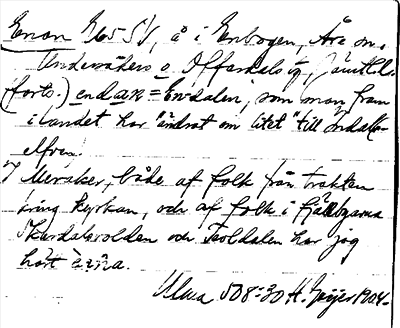 Enan E65-SV, å i Enbogen, Åre sn.
Undersåkers o Offerdals tg, Jämtl.
(forts.) endan = Endalen, som man fram
i landet har "ändrat om litet" till Indals-
elfven.
I Meraker, både af folk från trakten
kring kyrkan, och af folk i fjällbyarna
Skurdalsvolden och Teveldalen har jag
hört
Ulma 508:30 H. Geijer 1904.